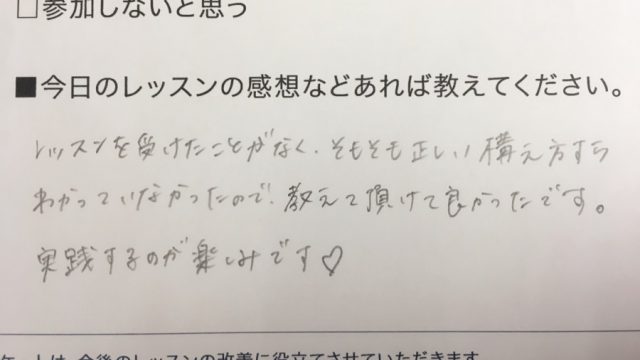 □参加しないと思う
■今日のレッスンの感想などあれば教えてください。
レッスンを受けたことがなく、そもそも正しい構え方すら
わかっていなかったので、教えて頂けて良かったです。
実践するのが楽しみです♡
ケートは、今後のレッスンの改善に役立てさせていただきます。